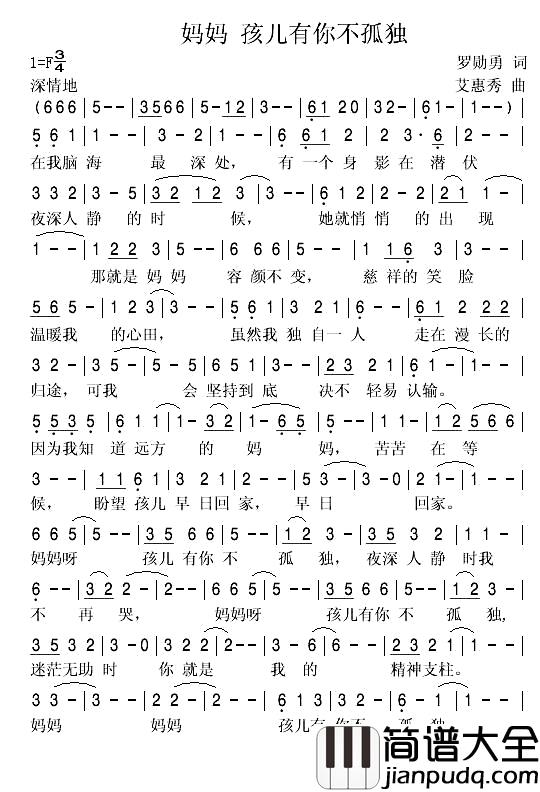 妈妈 孩儿有你不孤独
1=F 3/4 罗勋勇 词
深情地 艾惠秀 曲
( 666 | 5 - - | 3566 | 5 - 12 | 3 - - | 61 20 | 32 - | 61 - | 1 - - ) |
5 6 1 | 5 - - | 3 - 2 | 1 - - | 6 6 5 | 6 1 2 | 2 3· 6 | 2 - - |
在我脑 海 最 深 处, 有 一 个 身 影 在 潜 伏
3 3 2 | 3 - 5 | 3 2 1 2 | 3 - - | 3 - 0 | 3 3 2 | 1 - 2 | 2 1 1 | 5 - - |
夜深人 静 的 时 候, 她就悄 悄 的 出 现
1 - - | 1 2 2 | 3 - 5 | 5 - - | 6 - 5 | 5 - 3 | 3 - - | 1 1 6 | 3 - - |
那就是 妈 妈 容 颜不 变, 慈 祥的 笑 脸
5 6 5 | 1 2 3 | 3 - | 3 - - | 5 6 1 | 3 - 5 | 5 - 2 | 2 - - | 6 1 2 2 2 |
温暖我 的心田, 虽然我 独 自一 人 走在 漫 长的
3 - 2 | 3 5 5 | 5 - 2 | 6 5 1 | 3 - - | 2 3 2 1 | 6 1 - | 1 - - |
归途, 可我 会 坚持到 底 决不 轻易 认输。
5 5 3 5 | 6 1 1 | 1 - 3 2 | 2 - - | 1 - 6 5 | 5 - - | 1 2 5 6 6 |
因为我知 道 远方 的 妈 妈, 苦苦 在 等
3 - - | 1 1 6 1 | 3 2 1 | 2 - 2 | 5 3 | 3 - 0 | 2 1 | 1 - - | 1 - - |
候, 盼望 孩儿 早 日回 家, 早 日 回家。
6 6 5 | 5 - - | 3 5 6 6 | 5 - - | 1 2 3 | 3 - - | 3 3 2 | 1 1 - |
妈妈呀 孩儿 有你 不 孤 独, 夜深 人 静 时我
6 - - | 3 2 2 - | 2 - - | 6 6 5 | 5 - - | 3 5 6 6 | 5 - - | 1 2 3 | 3 - |
不 再 哭, 妈妈呀 孩儿有你 不 孤 独,
3 5 3 2 | 3 - 0 | 3 2 5 | 5 - - | 2 - - | 6 - 6 | 2 3 2 1 | 1 - - |
迷茫无助 时 你 就是 我 的 精神支柱。
3 - 3 | 3 - - | 2 - 2 | 2 - - | 6 1 3 | 3 2
妈妈 妈妈 孩儿有
简谱大全
jianpudq.com